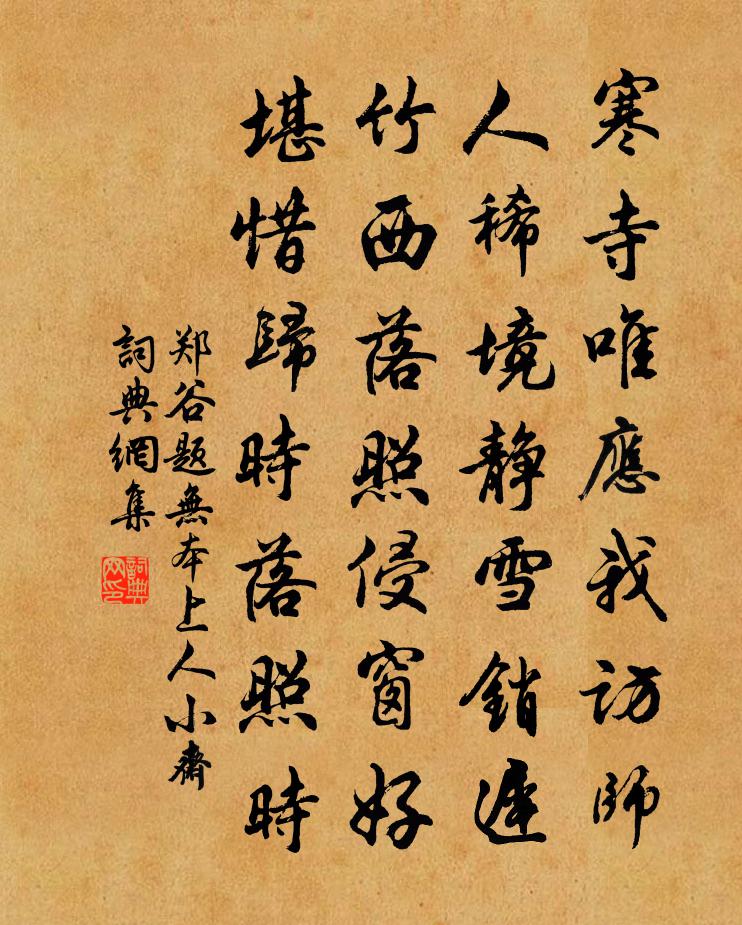 寒寺唯應我訪師
人稀境静雪銷遲
竹西落照侵窗好
堪惜歸時落照時
郑谷题無本上人小齋
詞典網集
詞典网印